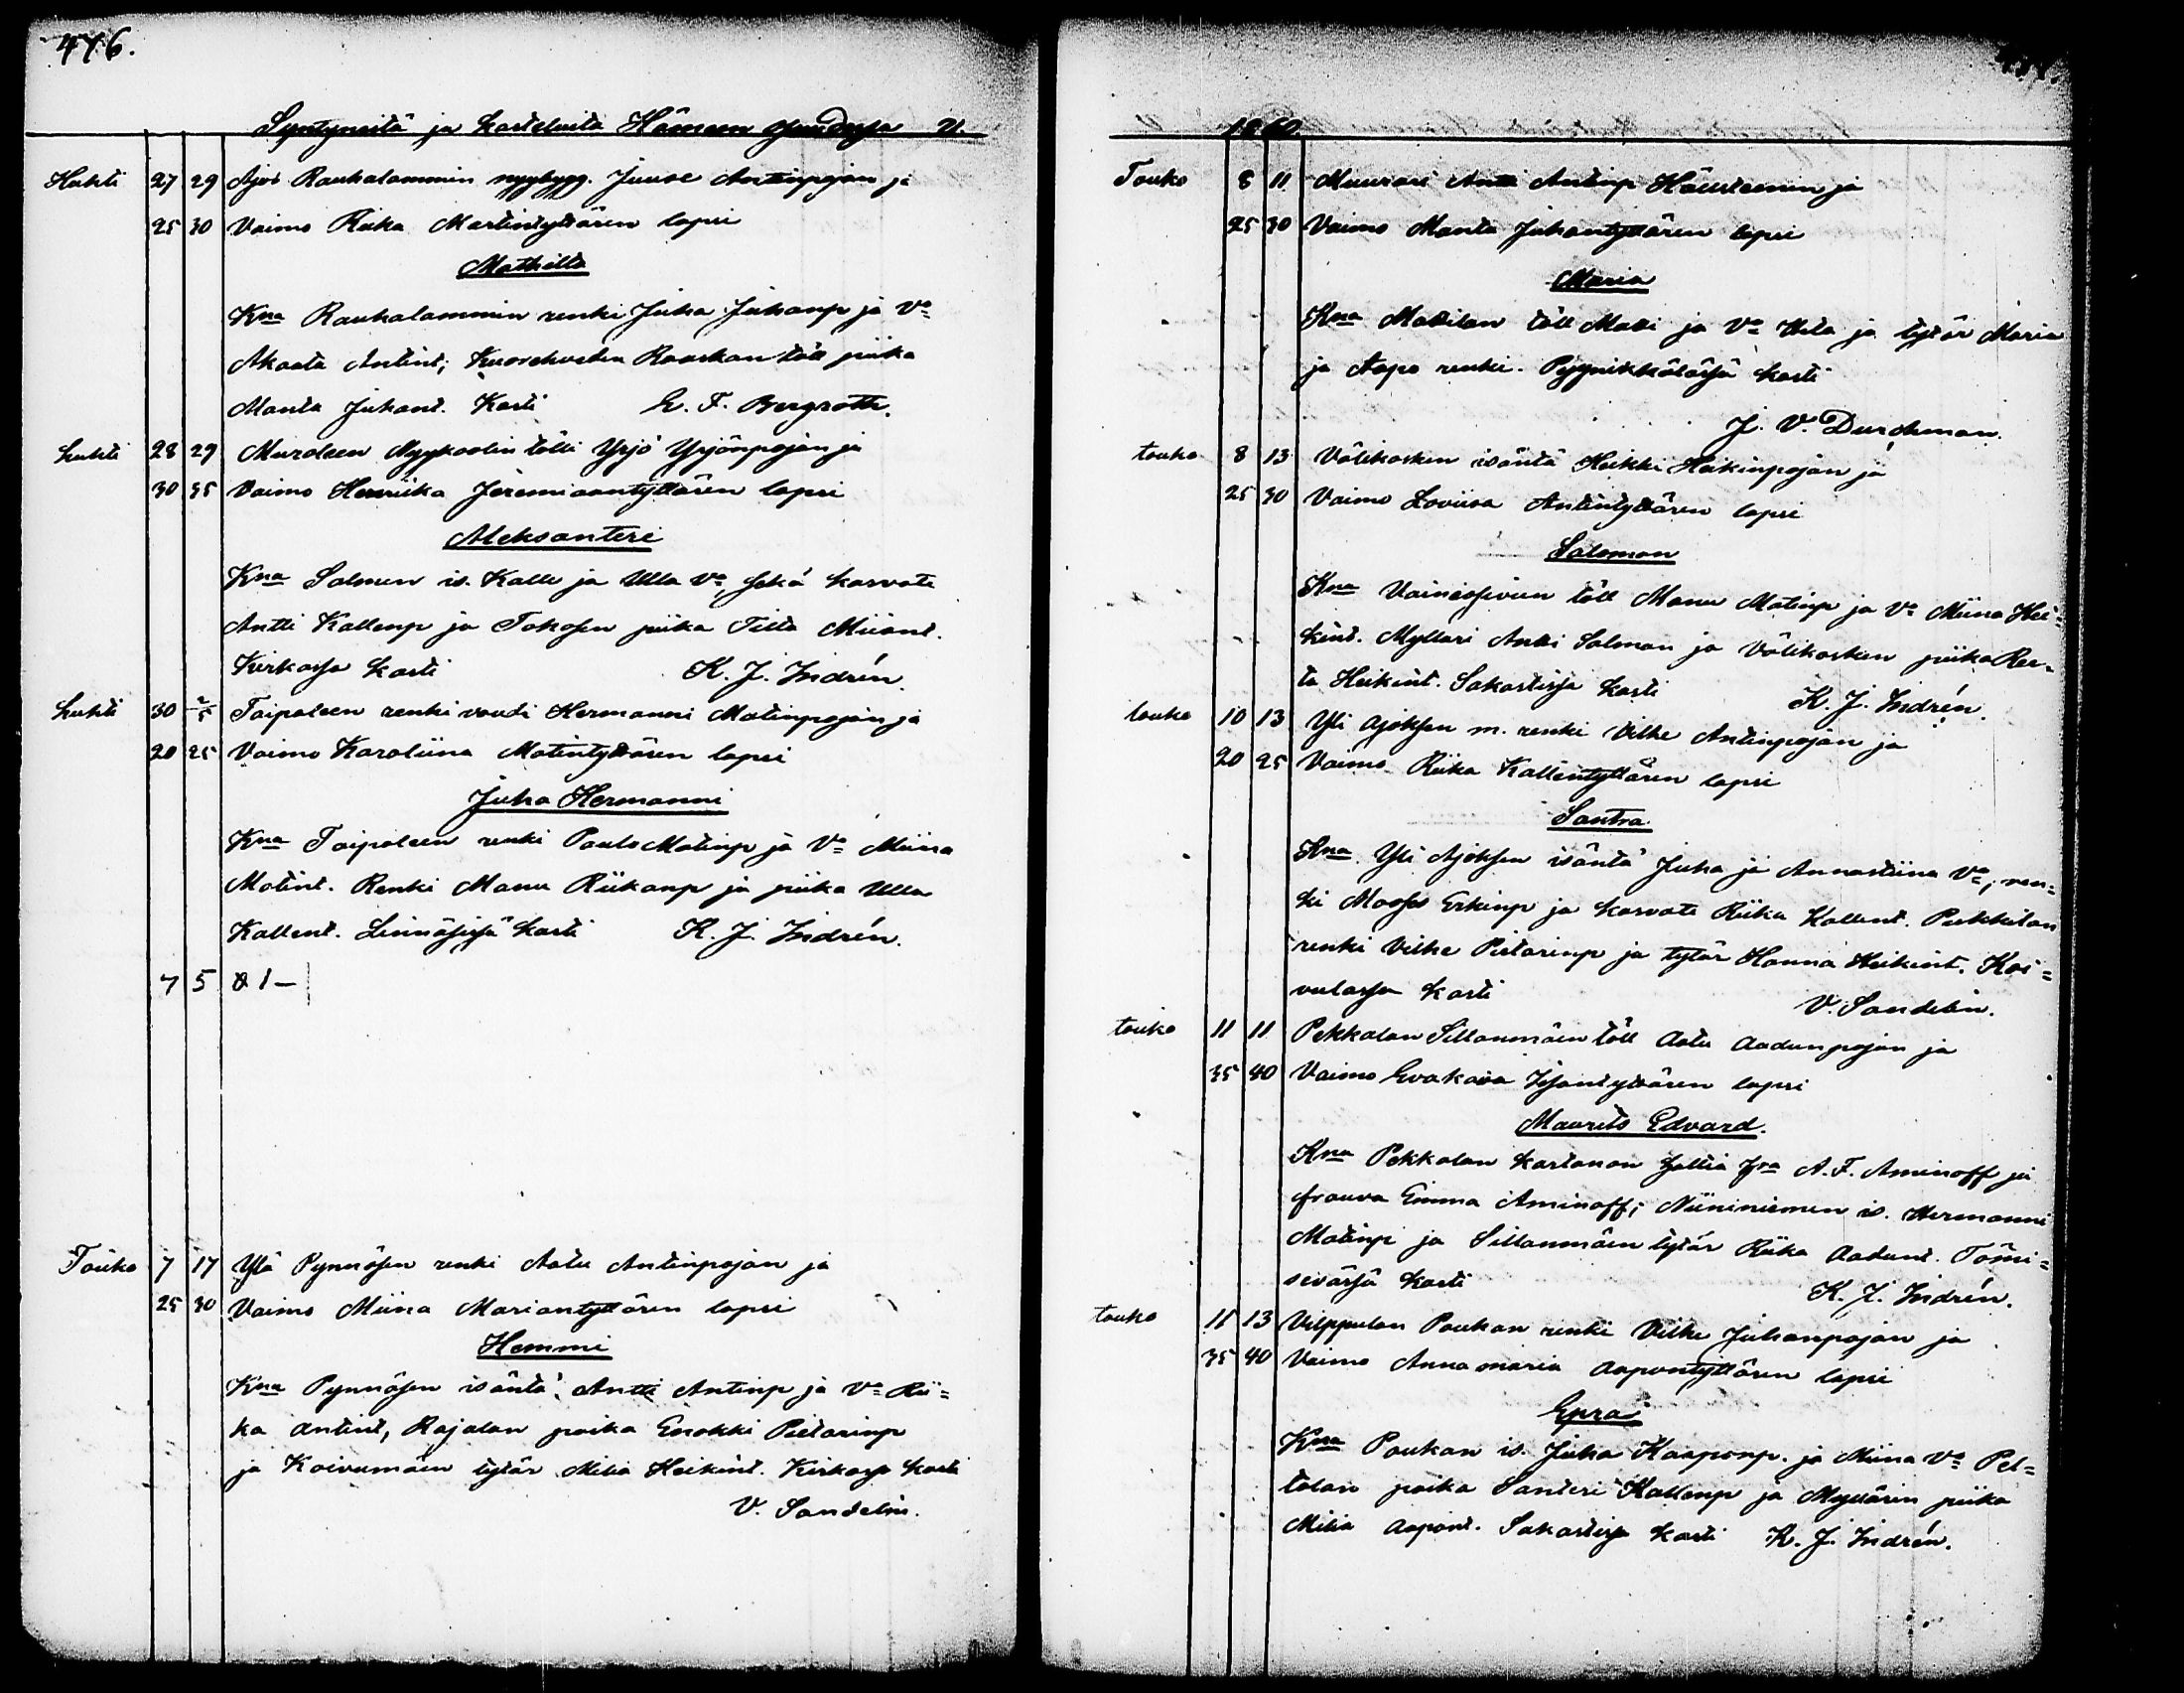 476.
Syntyneitä ja kasteluita Hämeen Ruovdessa V.
Huhti 27 29 Ajos Rauhalammin nyybygg. Juuse Antinpojan ja
25 30 Vaimo Riika Martintyttären lapsi
Mathilta
Kna Rauhalammin renki Juha Juhanp ja Vo
Akaata Antint; Kuorehveden Raaskan töll piika
Manta Juhant. Kasti E. F. Bergroth.
huhti 28 29 Muroleen Myykoolin tölli Yrjö Yrjönpojan ja
30 35 Vaimo Henriika Jeremiaantyttären lapsi
Aleksanteri
Kna Salmen is. Kalle ja Ulla Vo, sekä kasvate
Antti Kallenp ja Tokosen piika Tilta Miiant.
Kirkossa kasti K. J. Indrén.
huhti 30 2/5 Taipaleen renki voudi Hermanni Matinpojan ja
20 25 Vaimo Karoliina Matintyttären lapsi
Juha Hermanni
Kna Taipaleen renki Paulo Matinp ja Vo Miina
Matint. Renki Manu Riikanp ja piika Ulla
Kallent. Linnäsissä kasti K. J. Indrén.
7 5 & 1 —
Touko 7 17 Ylä Pynnösen renki Aatu Antinpojan ja
25 30 Vaimo Miina Mariantyttären lapsi
Hemmi
Kna Pynnösen isäntä Antti Antinp ja Vo Rii=
ka Antint, Rajalan poika Enokki Pietarinp
ja Koivumäen tytär Milia Heikint. Kirkossa kasti
V. Sandelin.
1860
Touko 8 11 Muurari Antti Antinp Häusteenin ja
25 30 Vaimo Manta Juhantyttären lapsi
Maria
Kna Mattilan töll Matti ja Vo Heta ja tytär Maria
ja Aapo renki. Pyynikkälässä kasti
J. V. Durchman.
touko 8 13 Välikosken isäntä Heikki Heikinpojan ja
25 30 Vaimo Loviisa Antintyttären lapsi
Salomon
Kna Vainiosivun töll Manu Matinp ja Vo Miina Hei=
kint. Myllari Antti Salman ja Välikosken piika Ree=
ta Heikint. Sakastissa kasti K. J. Indrén.
touko 10 13 Yli Ajoksen m. renki Vilke Antinpojan ja
20 25 Vaimo Riika Kallentyttären lapsi
Santra
Kna Yli Ajoksen isäntä Juha ja Annastiina Vo, ren=
ki Mooses Erkinp ja kasvate Riika Kallent. Pukkilan
renki Vilke Pietarinp ja tytär Hanna Heikint. Koi=
vulassa kasti V. Sandelin.
touko 11 11 Pekkalan Sillanmäen töll Aatu Aadunpojan ja
35 40 Vaimo Evakaisa Iisantyttären lapsi
Maurits Edvard.
Kna Pekkalan kartanon haltia hra A. F. Aminoff ja
frouva Emma Aminoff; Niininiemen is. Hermanni
Matinp ja Sillanmäen tytär Riika Aadunt. Tömi=
sevässä kasti K. J. Indrén.
touko 11 13 Vilppulan Paukan renki Vilke Juhanpojan ja
35 40 Vaimo Annamaria Aapontyttären lapsi
Epra
Kna Paukan is. Juha Kaaponp. ja Miina Vo Pel=
tolan poika Santeri Kallenp ja Myllärin piika
Milia Aapont. Sakastissa kasti K. J. Indrén.